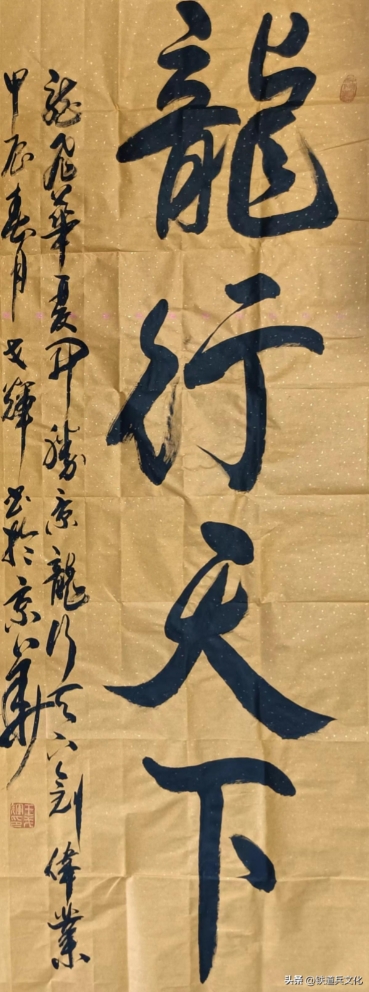 龍行天下
龍飛華夏升勝景龍行天下創偉業
甲辰春月文輝書於京華
头条 @铁道兵文化